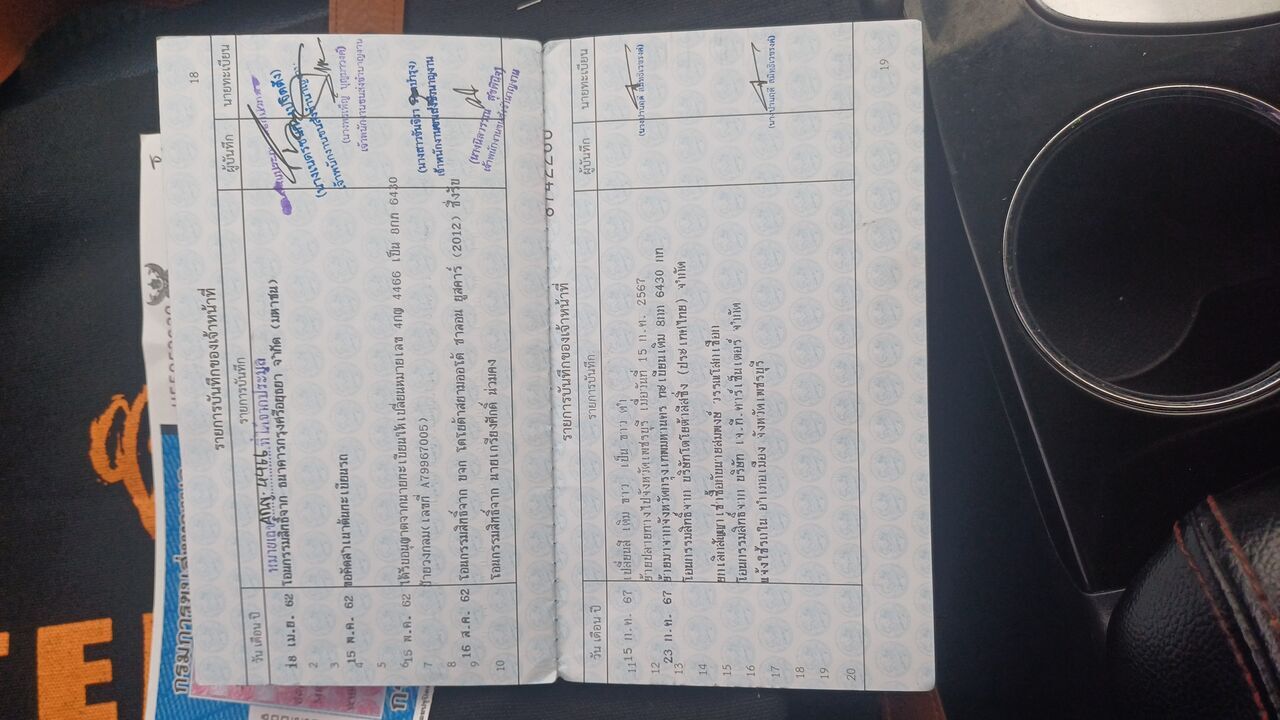 18
รายการบันทึกของเจ้าหน้าที่
วัน เดือน ปี รายการบันทึก ผู้บันทึก นายทะเบียน
หมายเลข 4กญ.4466 ที่ได้จากประมูล
1 18 เม.ย. 62 โอนกรรมสิทธิ์จาก ธนาคารกรุงศรีอยุธยา จำกัด (มหาชน)
2
3 15 พ.ค. 62 ขอคัดสำเนาต้นทะเบียนรถ
4 เจ้าพนักงานขนส่งชำนาญงาน
5
6 15 พ.ค. 62 ได้รับอนุญาตจากนายทะเบียนให้เปลี่ยนหมายเลข 4กญ 4466 เป็น 8กก 6430
7 ป้ายวงกลม(เลขที่ A79967005)
เจ้าพนักงานขนส่งชำนาญงาน
8
9 16 ส.ค. 62 โอนกรรมสิทธิ์จาก บจก โตโยต้าสยามออโต้ ซาลอน ยูสคาร์ (2012) ซึ่งรับ
10 โอนกรรมสิทธิ์จาก นายเกรียงศักดิ์ น่วมคง
เจ้าพนักงานขนส่งชำนาญงาน
8742260
รายการบันทึกของเจ้าหน้าที่
วัน เดือน ปี รายการบันทึก ผู้บันทึก นายทะเบียน
11 15 ก.ค. 67 เปลี่ยนสี เดิม ขาว เป็น ขาว ดำ
ย้ายปลายทางไปจังหวัดเพชรบุรี เมื่อวันที่ 15 ก.ค. 2567
12 23 ก.ค. 67 ย้ายมาจากจังหวัดกรุงเทพมหานคร ทะเบียนเดิม 8กก 6430 กท
13 โอนกรรมสิทธิ์จาก บริษัทโตโยต้าลีสซิ่ง (ประเทศไทย) จำกัด
14
15 ยกเลิกสัญญาเช่าซื้อกับนายสมพงษ์ วรรณโสภเชือก
16 โอนกรรมสิทธิ์จาก บริษัท เจ.ที.คาร์เซ็นเตอร์ จำกัด
17 แจ้งใช้รถใน อำเภอเมือง จังหวัดเพชรบุรี
18
19
20
19